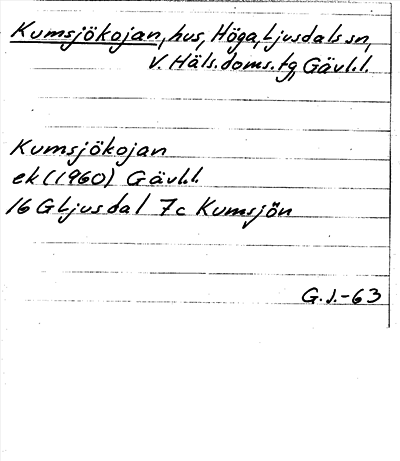 Kumsjökojan, hus, Höga, Ljusdals sn,
V. Häls. doms. tg, Gävl.l.
Kumsjökojan
ek (1960) Gävl.l.
16 G Ljusdal 7c Kumsjön
G.J.-63